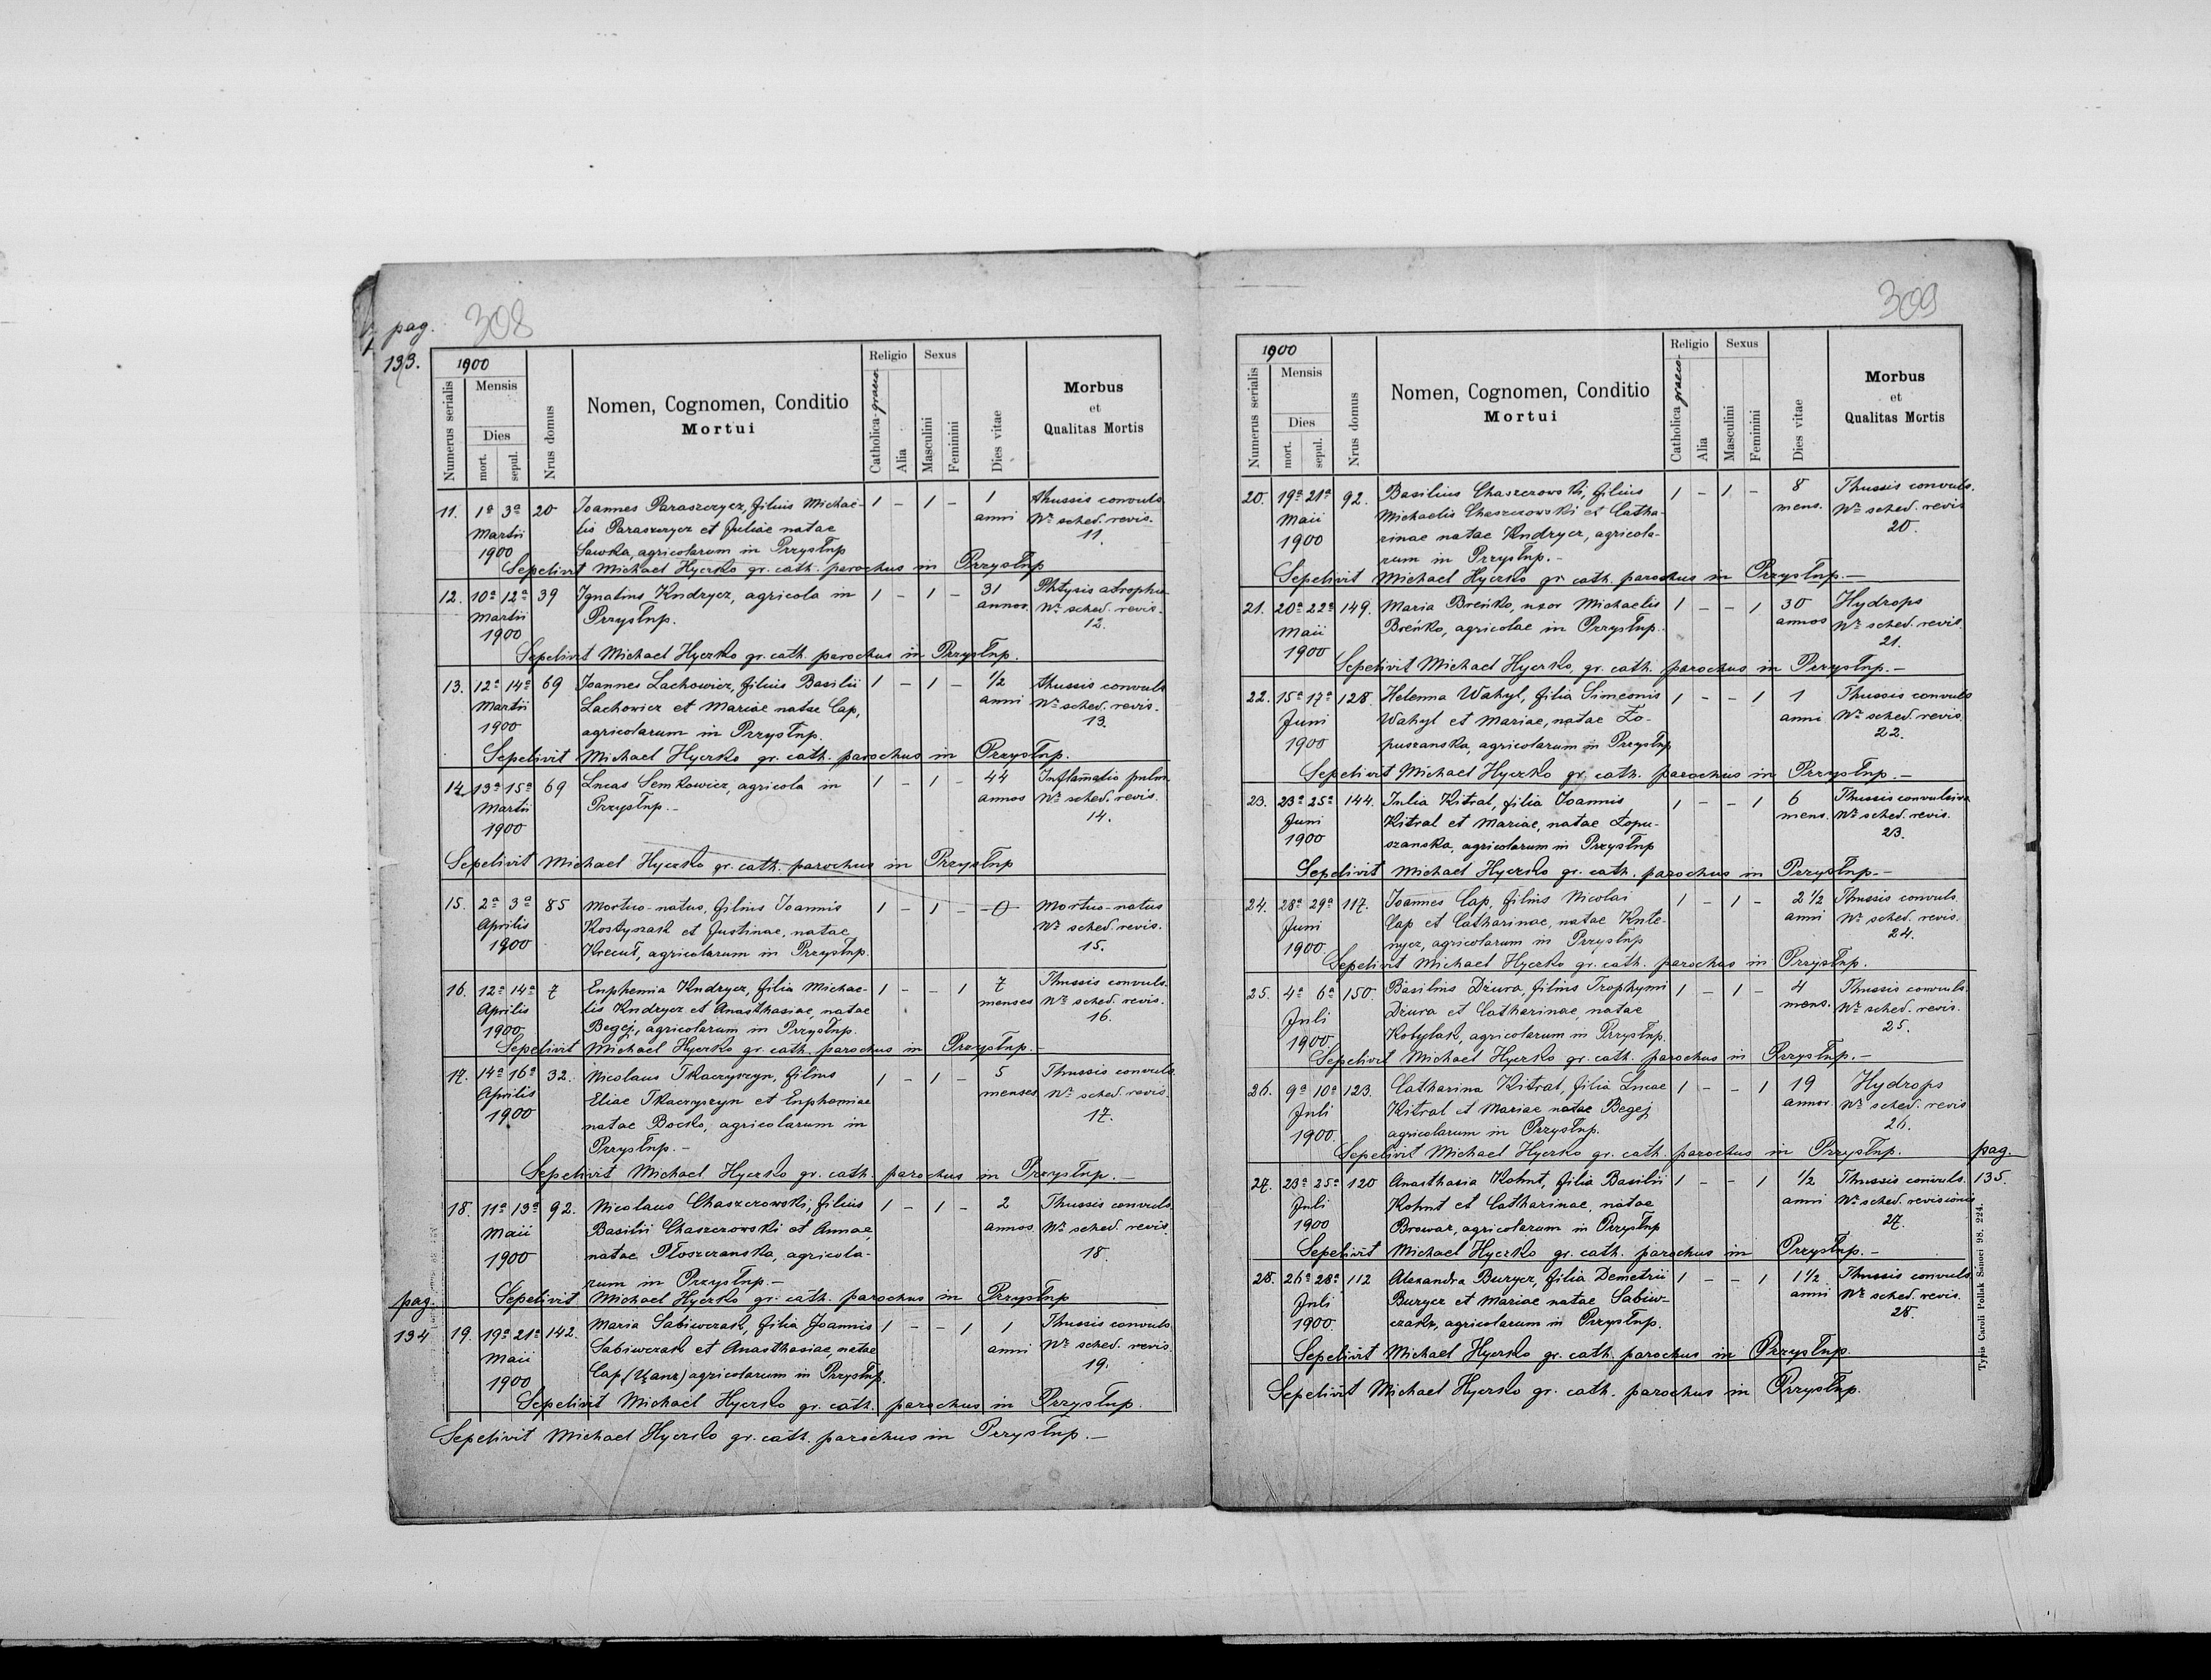 pag.
133.
308
1900
Numerus serialis
Mensis
Dies
mort.
sepul.
Nrus domus
Nomen, Cognomen, Conditio
Mortui
Religio
Catholica-graeco.
Alia
Sexus
Masculini
Feminini
Dies vitae
Morbus
et
Qualitas Mortis
11. 1ª 3ª 20 Joannes Paraszczycz, filius Michae- 1 - 1 - 1 thussis convuls.
Martii lis Paraszczycz et Juliae natae anni Nº sched. revis.
1900 Sawka, agricolarum in Przysłup 11.
Sepelivit Michael Hyczko gr. cath. parochus in Przysłup
12. 10ª 12ª 39 Ignatius Kudrycz, agricola in 1 - 1 - 31 Phtysis atrophia
Martii Przysłup. annos. Nº sched. revis.
1900 12.
Sepelivit Michael Hyczko gr. cath. parochus in Przysłup.
13. 12ª 14ª 69 Joannes Lachowicz, filius Basilii 1 - 1 - 1/2 thussis convuls
Martii Lachowicz et Mariae natae Cap, anni Nº sched. revis.
1900 agricolarum in Przysłup. 13.
Sepelivit Michael Hyczko gr. cath. parochus in Przysłup.
14. 13ª 15ª 69 Lucas Semkowicz, agricola in 1 - 1 - 44 Inflamatio pulm.
Martii Przysłup.- annos Nº sched. revis.
1900 14.
Sepelivit Michael Hyczko gr. cath. parochus in Przysłup
15. 2ª 3ª 85 Mortuo-natus, filius Joannis 1 - 1 - -0- Mortuo-natus
Aprilis Kostyszak et Justinae, natae Nº sched. revis.
1900 Krecut, agricolarum in Przysłup. 15.
16. 12ª 14ª 7 Euphemia Kudrycz, filia Michae- 1 - - 1 7 Thussis convuls.
Aprilis lis Kudrycz et Anasthasiae, natae menses Nº sched. revis.
1900 Begej, agricolarum in Przysłup. 16.
Sepelivit Michael Hyczko gr. cath. parochus in Przysłup.-
17. 14ª 16ª 32. Nicolaus Tkaczyszyn, filius 1 - 1 - 5 Thussis convuls.
Aprilis Eliae Tkaczyszyn et Euphemiae menses Nº sched. revis.
1900 natae Bocko, agricolarum in 17.
Przysłup.-
Sepelivit Michael Hyczko gr. cath. parochus in Przysłup.-
18. 11ª 13ª 92. Nicolaus Chaszczowski, filius 1 - 1 - 2 Thussis convuls
Maii Basilii Chaszczowski et Annae, annos. Nº sched. revis.
1900 natae Płoszczanska, agricola- 18.
rum in Przysłup.-
pag. Sepelivit Michael Hyczko gr. cath. parochus in Przysłup
134 19. 19ª 21ª 142. Maria Sabiwczak, filia Joannis 1 - - 1 1 Thussis convuls.
Maii Sabiwczak et Anasthasiae, natae anni Nº sched. revis.
1900 Cap agricolarum in Przysłup. 19.
Sepelivit Michael Hyczko gr. cath. parochus in Przysłup.
Sepelivit Michael Hyczko gr. cath. parochus in Przysłup.-
309
1900
Numerus serialis
Mensis
Dies
mort.
sepul.
Nrus domus
Nomen, Cognomen, Conditio
Mortui
Religio
Catholica graeco-
Alia
Sexus
Masculini
Feminini
Dies vitae
Morbus
et
Qualitas Mortis
20. 19ª 21ª 92. Basilius Chaszczowski, filius 1 - 1 - 8 Thussis convuls.
Maii Michaelis Chaszczowski et Catha- mens. Nº sched. revis
1900 rinae natae Kudrycz, agricola- 20.
rum in Przysłup.-
Sepelivit Michael Hyczko gr cath. parochus in Przysłup.-
21. 20ª 22ª 149. Maria Breńko, uxor Michaelis 1 - - 1 30 Hydrops
Maii Breńko, agricolae in Przysłup. annos Nº sched. revis.
1900 21.
Sepelivit Michael Hyczko, gr. cath. parochus in Przysłup.-
22. 15ª 17ª 128. Helenna Wahyl, filia Simeonis 1 - - 1 1 Thussis convuls
Juni Wahyl et Mariae, natae Ło- anni Nº sched. revis.
1900 puszanska, agricolarum in Przysłup 22.
Sepelivit Michael Hyczko gr. cath. parochus in Przysłup.-
23. 23ª 25ª 144. Julia Kitral, filia Joannis 1 - - 1 6 Thussis convulsiva
Juni Kitral et Mariae, natae Łopu- mens. Nº sched. revis.
1900 szanska, agricolarum in Przysłup 23.
Sepelivit Michael Hyczko gr. cath. parochus in Przysłup.-
24. 28ª 29ª 117. Joannes Cap, filius Nicolai 1 - 1 - 2 1/2 Thussis convuls.
Juni Cap et Catharinae, natae Knte- anni Nº sched. revis.
1900. nycz, agricolarum in Przysłup 24.
Sepelivit Michael Hyczko gr. cath. parochus in Przysłup.
25. 4ª 6ª 150. Basilius Dżura, filius Trophymi 1 - 1 - 4 Thussis convuls.
Juli Dżura et Catharinae, natae mens. Nº sched. revis.
1900. Kobylak, agricolarum in Przysłup. 25.
Sepelivit Michael Hyczko gr. cath. parochus in Przysłup.-
26. 9ª 10ª 123. Catharina Kitral, filia Lucae 1 - - 1 19 Hydrops
Juli Kitral et Mariae natae Begej annor. Nº sched. revis
1900. agricolarum in Przysłup. 26.
Sepelivit Michael Hyczko gr. cath. parochus in Przysłup. pag.
27. 23ª 25ª 120 Anasthasia Kohut, filia Basilii 1 - - 1 1/2 Thussis convuls. 135.
Juli Kohut et Catharinae, natae anni Nº sched. revisionis
1900 Browar, agricolarum in Przysłup 27.
Sepelivit Michael Hyczko gr. cath. parochus in Przysłup.-
28. 26ª 28ª 112 Alexandra Burycz, filia Demetrii 1 - - 1 1 1/2 Thussis convuls.
Juli Burycz et Mariae natae Sabiw- anni Nº sched. revis.
1900. czak, agricolarum in Przysłup. 28.
Sepelivit Michael Hyczko gr. cath. parochus in Przysłup.
Sepelivit Michael Hyczko gr. cath. parochus in Przysłup.
Typis Caroli Pollak Sanoci 98. 224.